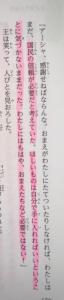 「アーシャ、感謝せねばならんな。おまえがわたしにたてついたりしなければ、わたしは
まだ、国民の信頼が必要だと考えていた。ほしいものは自分で手に入れればいいというこ
とに気づかないままだった。わたしにはもはや、おまえたちなど必要ではない！」
王は笑って、人びとを見おろした。